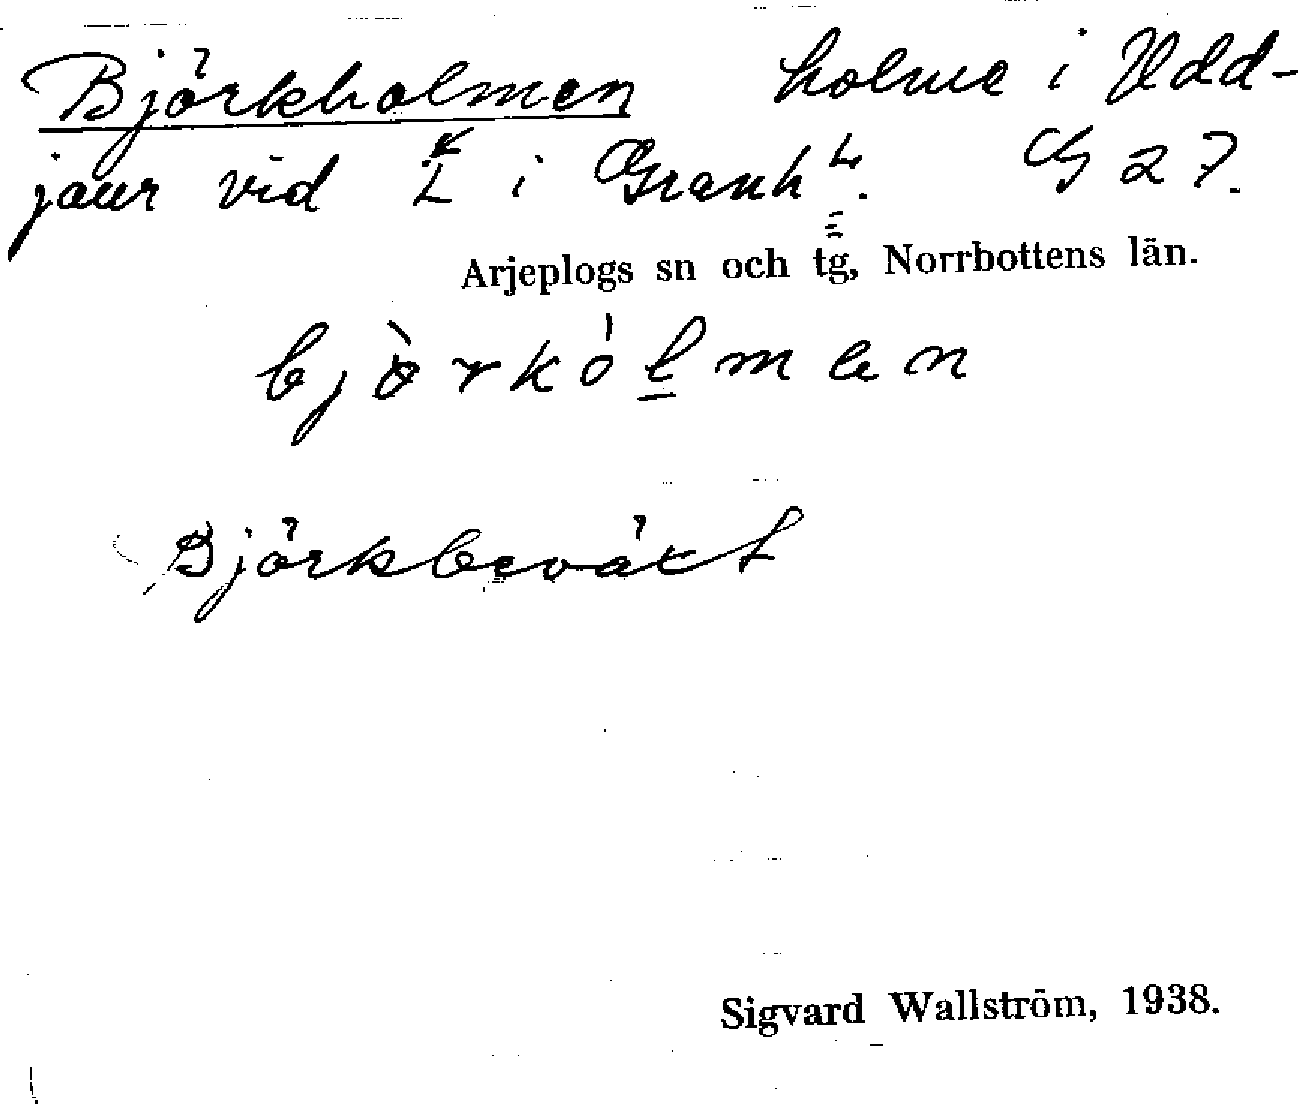 Björkholmen holme i Udd-
jaur vid i Granh. G 27.
Arjeplogs sn och tg, Norrbottens län.
bjòrkólmen
Björkbeväxt
Sigvard Wallström, 1938.